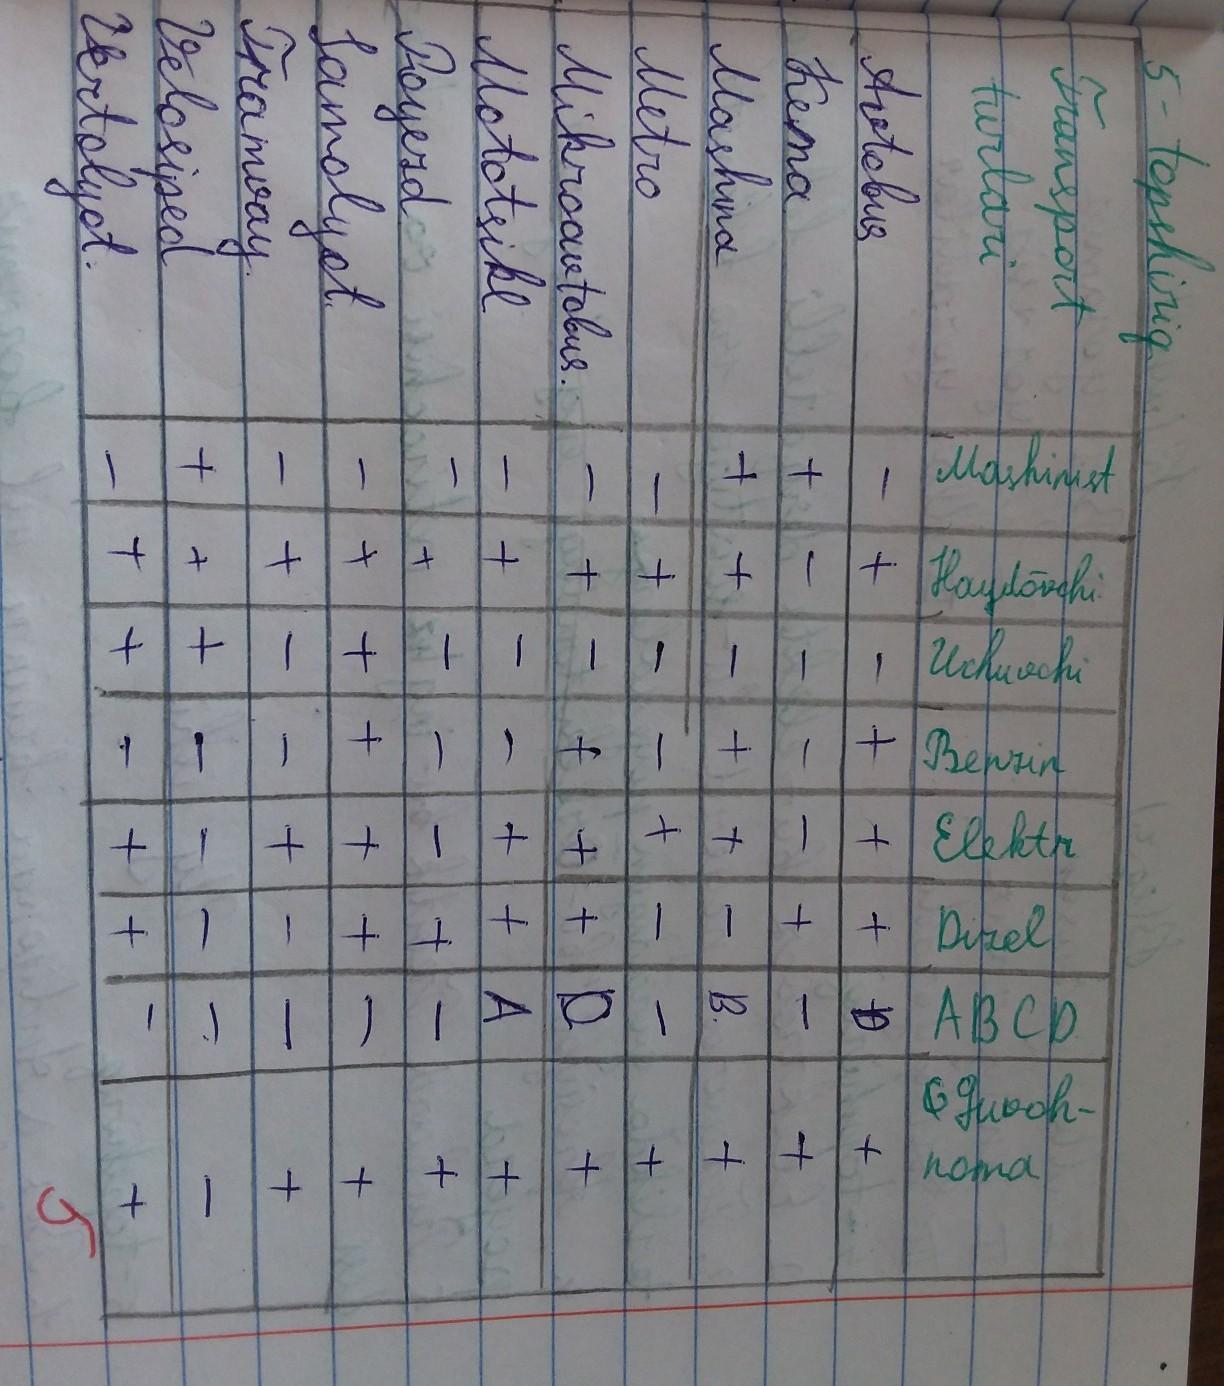 5-topshiriq
Transport turlari Mashinist Haydōvchi Uchuvchi Benzin Elektr Dizel A B C D Guvoh-noma
Avtobus - + - + + + D +
Kema + - - - - + - +
Mashina + + - + + - B. +
Metro - + - - + - - +
Mikroavtobus. - + - + + + D +
Mototsikl - + - - + + A +
Poyezd - + - - - + - +
Samolyot. - + + + + + - +
Tramvay. - + - - + - - +
Velosiped + + + - - - - -
Vertolyot. - + + - + + - +
5